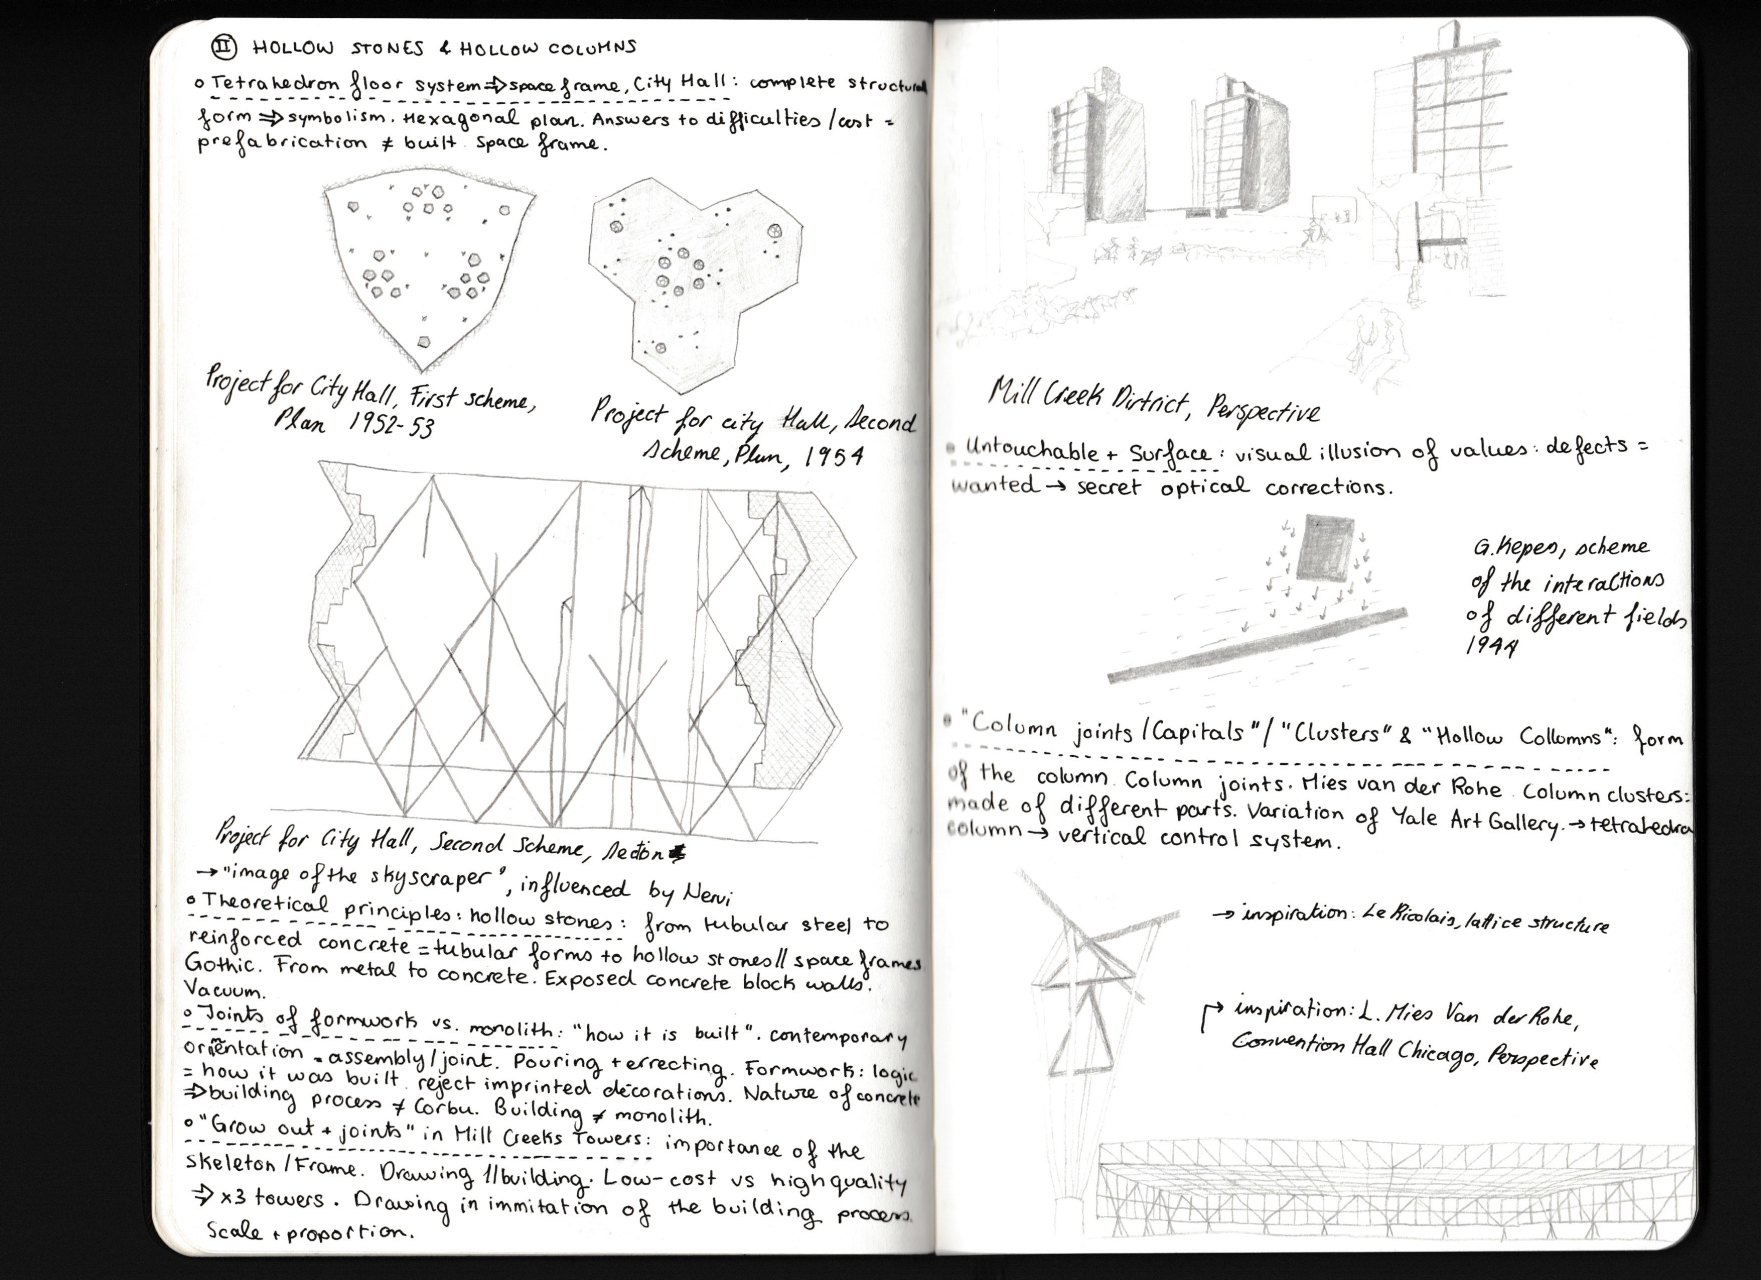 II HOLLOW STONES & HOLLOW COLUMNS
o Tetrahedron floor system ⇒ space frame, City Hall: complete structural
form ⇒ symbolism. Hexagonal plan. Answers to difficulties / cost =
prefabrication ≠ built space frame.
Project for City Hall, First scheme,
Plan 1952-53
Project for city Hall, Second
Scheme, Plan, 1954
Project for City Hall, Second Scheme, Section
→ "image of the skyscraper", influenced by Nervi
o Theoretical principles: hollow stones: from tubular steel to
reinforced concrete = tubular forms to hollow stones // space frames
Gothic. From metal to concrete. Exposed concrete block walls.
Vacuum.
o Joints of formwork vs. monolith: "how it is built". contemporary
orientation = assembly/joint. Pouring + errecting. Formwork: logic
= how it was built. reject imprinted decorations. Nature of concrete
⇒ building process ≠ Corbu. Building ≠ monolith.
o "Grow out + joints" in Mill Creeks Towers: importance of the
skeleton / Frame. Drawing // building. Low-cost vs high quality
⇒ x3 towers. Drawing in immitation of the building process.
Scale + proportion.
Mill Creek District, Perspective
o Untouchable + Surface: visual illusion of values: defects =
wanted → secret optical corrections.
G. Kepes, scheme
of the interactions
of different fields
1944
o "Column joints / Capitals" / "Clusters" & "Hollow Collomns": form
of the column. Column joints. Mies van der Rohe. Column clusters:
made of different parts. Variation of Yale Art Gallery. → tetrahedra
column → vertical control system.
→ inspiration: Le Ricolais, lattice structure
→ inspiration: L. Mies Van der Rohe,
Convention Hall Chicago, Perspective